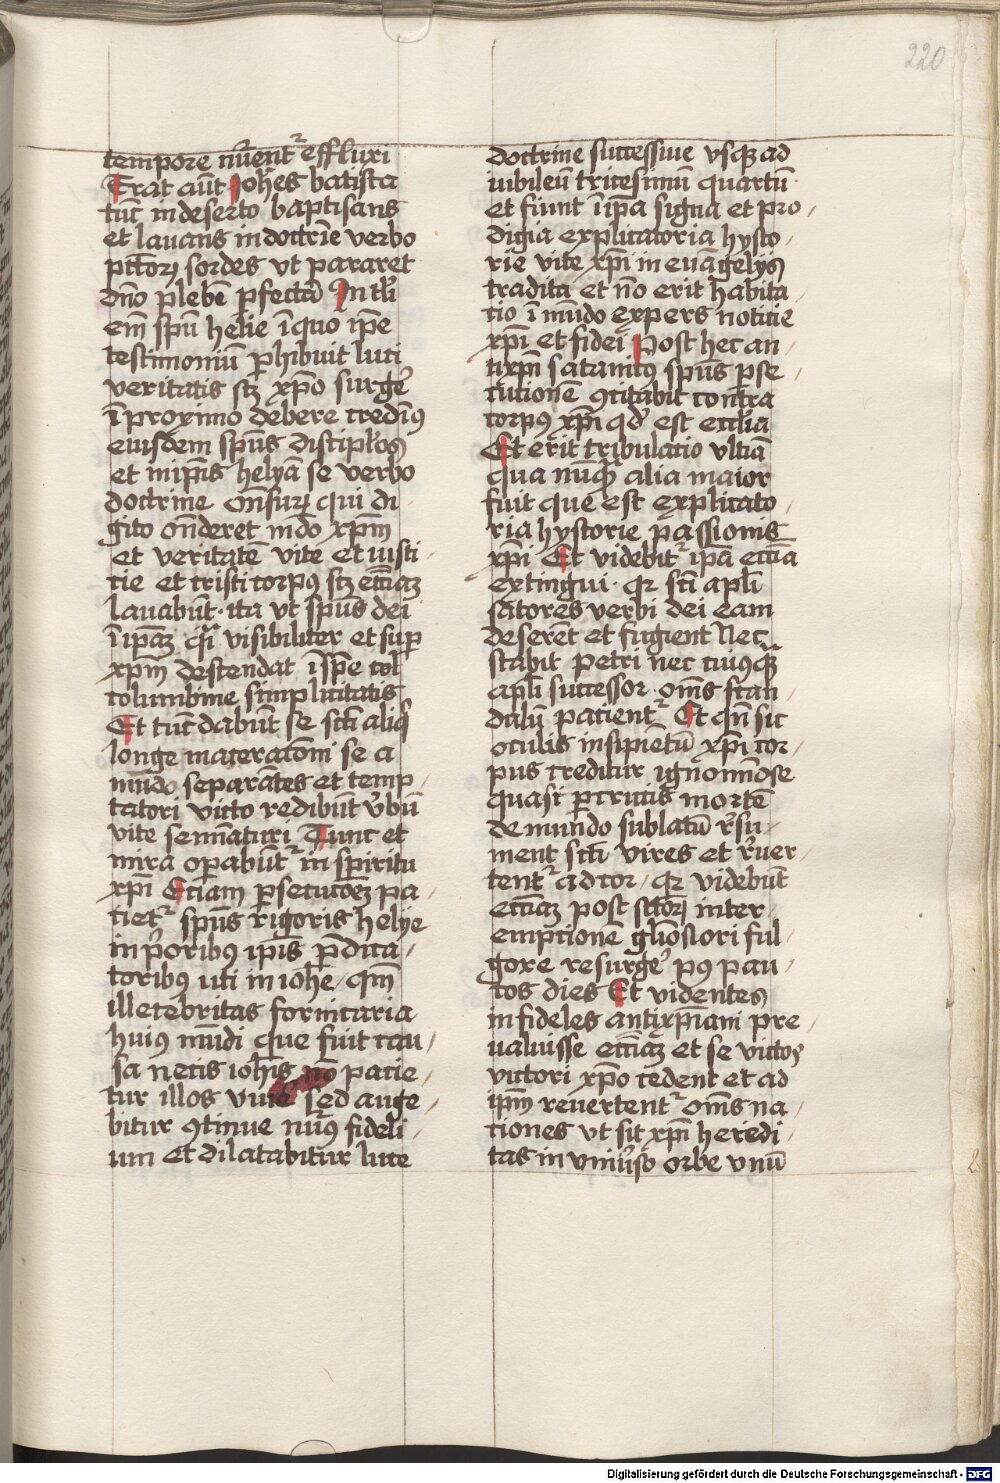 220
tempore nuͤentᷣ effluxi
Erat aūt Joh̄es batista
tūc in deserto baptisans
et lavans in doctrīe verbo
pctōꝝ sordes vt pararet
dn̄o plebē ꝑfectā In tali
em̄ spū helie ī quo ip̄e
testimoniū ꝑhibuit luci
veritatis scꝫ xp̄o surgẽ
ī proximo debere credimꝰ
eiusdem spūs discipl'os
et mīs helyā se verbo
doctrine ꝯfusuꝝ qui di
gito on̄deret mūdo xp̄m
et veritatē vite et iusti
cie et cristi corpꝰ scꝫ eccl̄iaꝫ
lavabūt ita vt spūs dei
ī ip̄aꝫ q̄si visibiliter et suꝑ
xp̄m descendat ī spē col
columbine simplicitatis
Et tūc dabūt se scī aliqͥ
longe maceratōni se a
mūdo separātes et temp
tatori victo redibūt ꝟbū
vite semīaturi Tunc et
mira oꝑabūtᷣ in spiritu
xp̄i Etiam ꝑsecutōeꝫ pa
cietᷣ spūs rigoris helye
in pͥoribꝰ ip̄is p̄dica
toribꝰ uti in ioh̄e qm̄
illecebritas fornicaria
huiꝰ mūdi que fuit cau
sa necis ioh̄is nō pacie
tur illos viuē sed auge
bitur ꝯtinue nūꝰ fideli
um et dilatabitur luce
doctrine successive vsqꝫ ad
iubileū tricesimū quartū
et fiunt ī ip̄a signa et pro
digia explicatoria hysto
rie vite xp̄i in euāgelijs
tradita et nō erit habita
cio ī mūdo expers noticie
xp̄i et fidei Post hec an
tixp̄m satanicꝰ spūs ꝑse
cutionē ꝯcitabit contra
corpꝰ xp̄i qd' est eccl̄ia
Et erit tribulatio vltīa
qua nūqꝫ alia maior
fuit que est explicato
ria hystorie passionis
xp̄i Et videbitᷣ ip̄a eccl̄ia
extingui qꝛ scī apl̄i
satores verbi dei eam
deserēt et fugient Nec
stabit petri nec cuiꝰqꝫ
apl̄i successor om̄s scan
dalū pacientᷣ Et qn̄ sic
oculis insipiētū xp̄i cor
pus creditur ignomīose
quasi ꝑ crucis mortē
de mundo sublatū rͤsu
ment scī vires et rͤuer
tentᷣ ad cor qꝛ videbūt
eccl̄iaꝫ post sctōꝝ inter
emptionē gl̄iosiori ful
gore resurgẽ pꝰ pau
cos dies Et videntes
infideles antixp̄iani pre
valuisse eccl̄iaꝫ et se victos
victori xp̄o cedent et ad
ip̄m reuertentᷣ om̄s na
ciones vt sit xp̄i heredi
tas in vniͮso orbe vnū
Digitalisierung gefördert durch die Deutsche Forschungsgemeinschaft - DFG